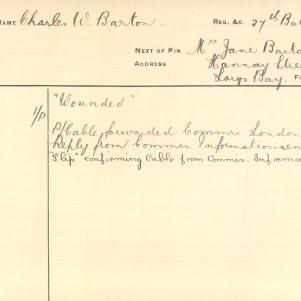 NAME Charles W. Barton. REG. &C. 27th Bat
NEXT OF KIN Mrs Jane Barto
ADDRESS Hannay
Largs Bay. F
"Wounded"
1/P P/Cable forwarded Commis London
Reply from Commis. Information sen
"Slip" confirming Cable from Commis. Informa